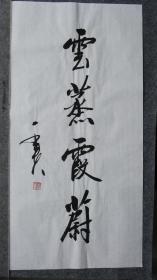 雲蒸霞蔚